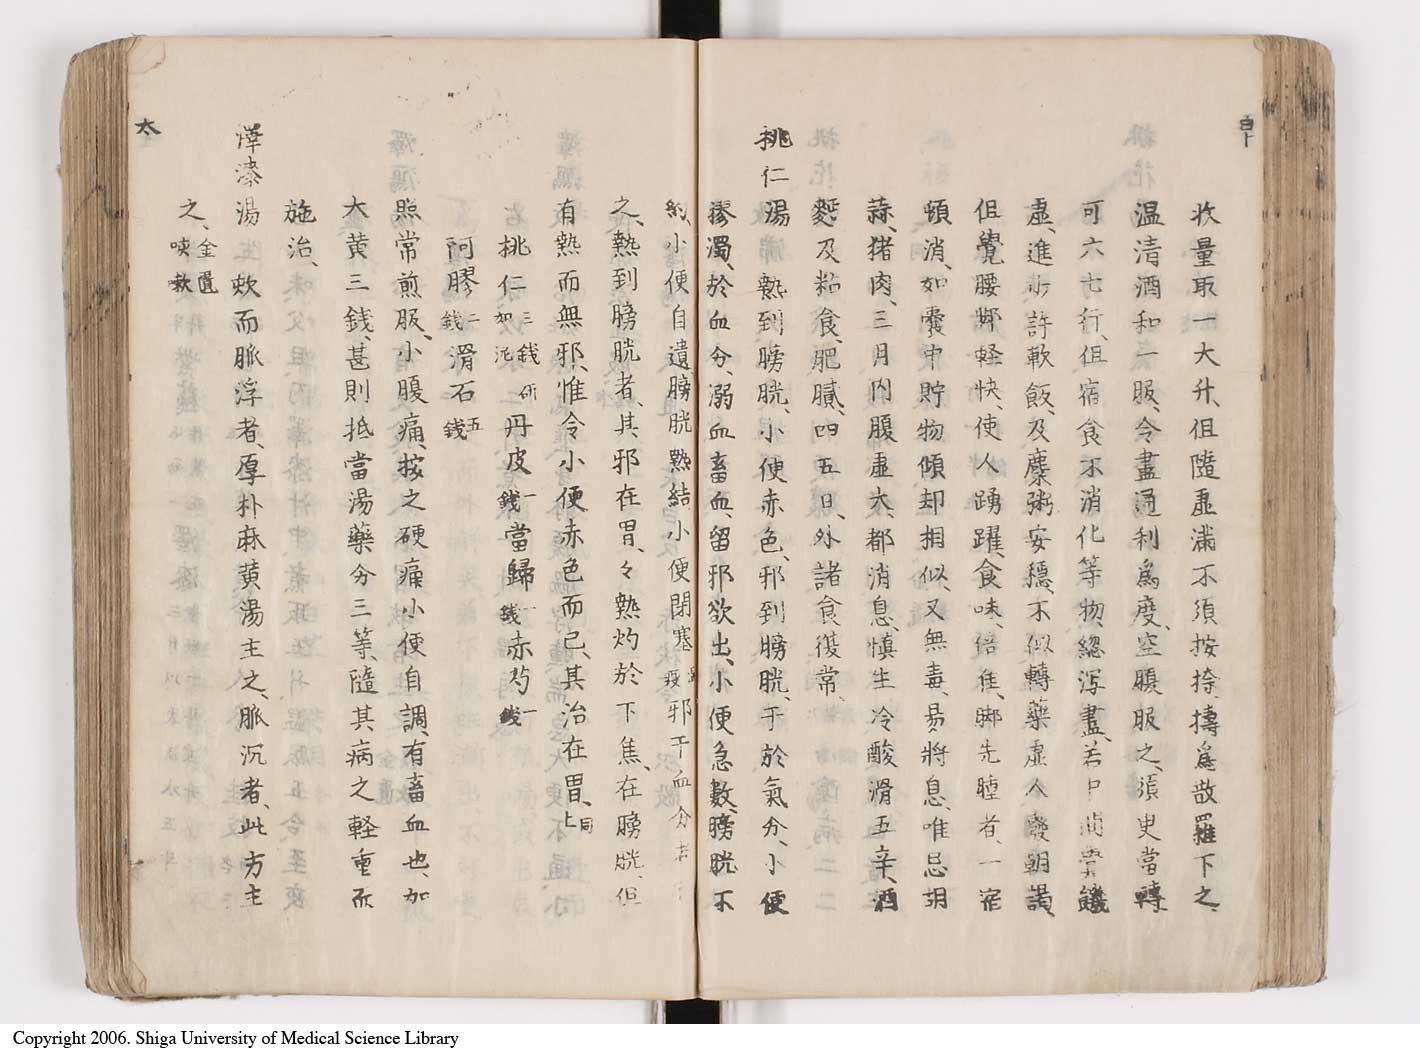 收量取一大升、但隨虛滿不須按捺、擣爲散羅下之、
温清酒和一服、令盡通利爲度、空腹服之、須臾當轉
可六七行、但宿食不消化等物、緫瀉盡、若中間覺饑
虛、進少許軟飯、及糜粥安穩、不似轉藥虛人癈朝謁
但覺腰脚軽快、使人踴躍、食味倍佳、脚先腫者、一宿
頓消、如囊中貯物傾却相似、又無毒、易將息、唯忌胡
蒜、猪肉、三月內腹虛大、都消息、慎生冷酸滑五辛、酒
麪及粘食、肥膩、四五日、外諸食復常、
桃仁湯 熱到膀胱、小便赤色、邪到膀胱、干於氣分、小便
膠濁、於血分、溺血畜血、留邪欲出、小便急數、膀胱不
約、小便自遺、膀胱熱結、小便閉塞 邪干血分者
之、熱到膀胱者、其邪在胃、々熱灼於下焦、在膀胱、但
有熱而無邪、惟令小便赤色而已、其治在胃、同上
桃仁三錢研如泥 丹皮一錢 當歸一錢 赤芍一錢
阿膠二錢 滑石五錢
照常煎服、小腹痛、按之硬痛、小便自調、有畜血也、加
大黄三錢、甚則抵當湯藥、分三等、隨其病之軽重而
施治、
澤漆湯 欬而脈浮者、厚朴麻黄湯主之、脈沉者、此方主
之、金匱咳欬
太